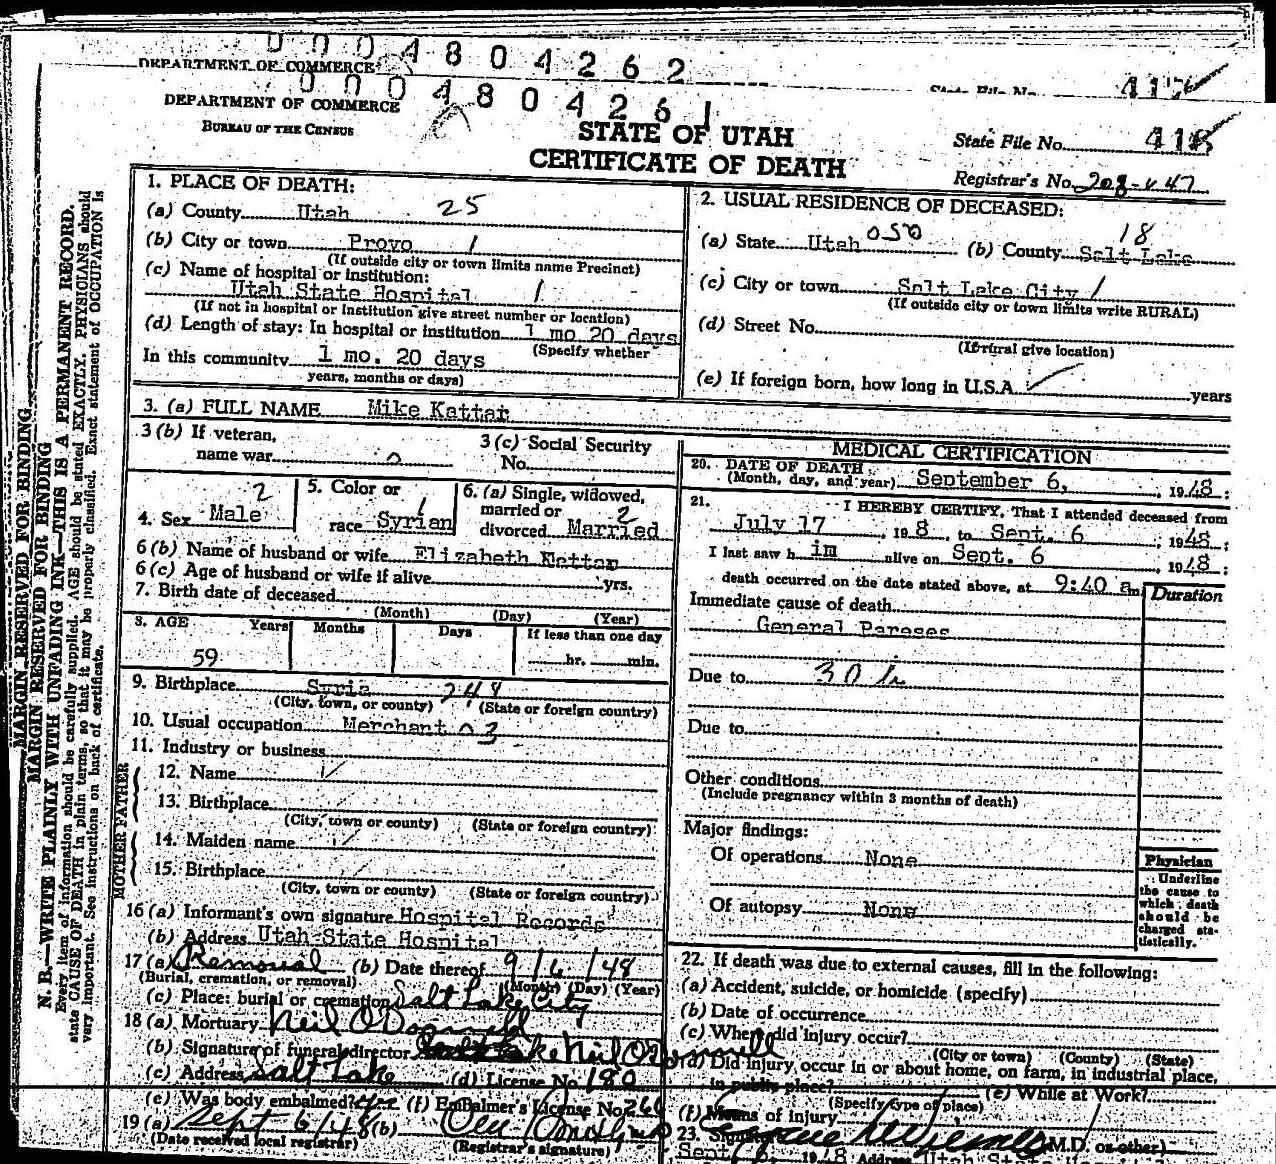 0004804262
DEPARTMENT OF COMMERCE
State File No. 417
0004804261
DEPARTMENT OF COMMERCE
BUREAU OF THE CENSUS
STATE OF UTAH
CERTIFICATE OF DEATH
State File No. 418
Registrar's No. 208-V47
MARGIN RESERVED FOR BINDING
MARGIN RESERVED FOR BINDING
N. B.—WRITE PLAINLY WITH UNFADING INK—THIS IS A PERMANENT RECORD.
Every item of information should be carefully supplied. AGE should be stated EXACTLY. PHYSICIANS should
state CAUSE OF DEATH in plain terms, so that it may be properly classified. Exact statement of OCCUPATION is
very important. See instructions on back of certificate.
1. PLACE OF DEATH:
(a) County Utah 25
(b) City or town Provo 1
(If outside city or town limits name Precinct)
(c) Name of hospital or institution:
Utah State Hospital 1
(If not in hospital or institution give street number or location)
(d) Length of stay: In hospital or institution 1 mo 20 days
(Specify whether
In this community 1 mo. 20 days
years, months or days)
2. USUAL RESIDENCE OF DECEASED:
(a) State Utah 050 (b) County Salt Lake 18
(c) City or town Salt Lake City 1
(If outside city or town limits write RURAL)
(d) Street No.
(If rural give location)
(e) If foreign born, how long in U.S.A. years
3. (a) FULL NAME Mike Kattar
3 (b) If veteran,
name war o
3 (c) Social Security
No.
4. Sex Male 2
5. Color or
race Syrian 1
6. (a) Single, widowed,
married or
divorced Married 2
6 (b) Name of husband or wife Elizabeth Kattar
6 (c) Age of husband or wife if alive yrs.
7. Birth date of deceased
(Month) (Day) (Year)
8. AGE Years Months Days If less than one day
59 hr. min.
9. Birthplace Syria 248
(City, town, or county) (State or foreign country)
10. Usual occupation Merchant 03
11. Industry or business
FATHER
12. Name
13. Birthplace
(City, town or county) (State or foreign country)
MOTHER
14. Maiden name
15. Birthplace
(City, town or county) (State or foreign country)
16 (a) Informant's own signature Hospital Records
(b) Address Utah State Hospital
17 (a) Removal (b) Date thereof 9/6/48
(Burial, cremation, or removal) (Month) (Day) (Year)
(c) Place: burial or cremation Salt Lake City
18 (a) Mortuary Neil O'Donnell
(b) Signature of funeral director Neil O'Donnell
(c) Address Salt Lake (d) License No. 180
(e) Was body embalmed? (f) Embalmer's License No. 260
19 (a) Sept 6/48 (b)
(Date received local registrar) (Registrar's signature)
MEDICAL CERTIFICATION
20. DATE OF DEATH
(Month, day, and year) September 6, , 1948;
21. I HEREBY CERTIFY, That I attended deceased from
July 17 , 19 8, to Sept. 6 , 1948;
I last saw h im alive on Sept. 6 , 1948;
death occurred on the date stated above, at 9:40 a m.
Duration
Immediate cause of death
General Pareses
Due to 30 b
Due to
Other conditions
(Include pregnancy within 3 months of death)
Major findings:
Of operations None
Of autopsy None
Physician
Underline
the cause to
which death
should be
charged sta-
tistically.
22. If death was due to external causes, fill in the following:
(a) Accident, suicide, or homicide (specify)
(b) Date of occurrence
(c) Where did injury occur?
(City or town) (County) (State)
(d) Did injury occur in or about home, on farm, in industrial place,
in public place? (e) While at Work?
(Specify type of place)
(f) Means of injury
23. Signature M.D. or other)
Sept. 1948 Address Utah St